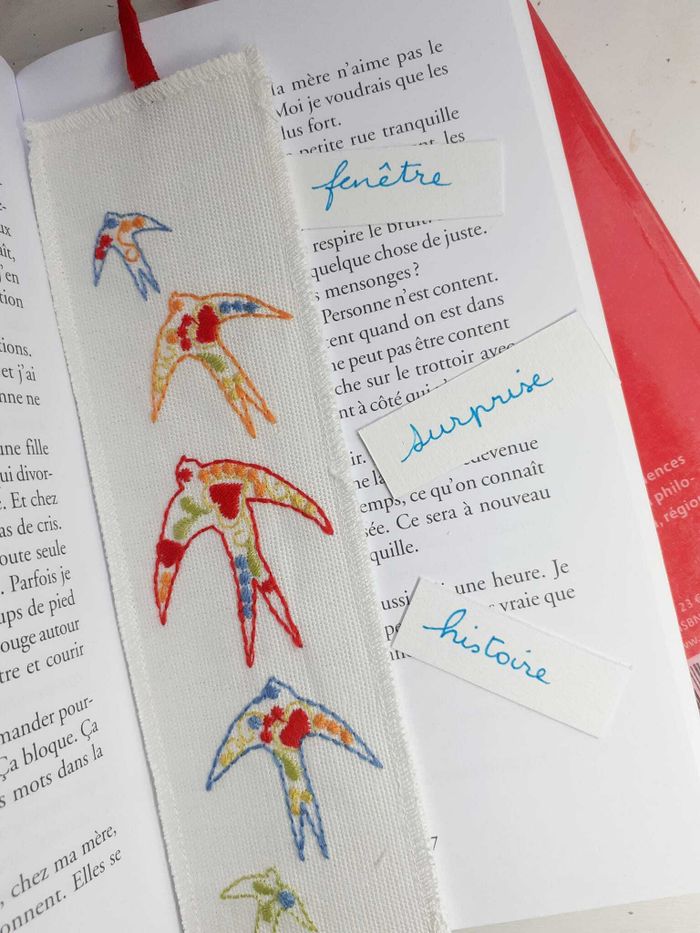 ux
ait,
j'en
tion
tions.
et j'ai
nne ne
une fille
ui divor-
. Et chez
as de cris.
oute seule
. Parfois je
ups de pied
ouge autour
tre et courir
mander pour-
Ça bloque. Ça
s mots dans la
, chez ma mère,
onnent. Elles se
la mère n'aime pas le
Moi je voudrais que les
lus fort.
petite rue tranquille
les
fenêtre
respire le bruit.
quelque chose de juste.
mensonges ?
Personne n'est content.
cent quand on est dans
ne peut pas être content
che sur le trottoir avec
nt à côté qui
surprise
ir.
devenue
ne la
emps, ce qu'on connaît
sée. Ce sera à nouveau
quille.
ussi une heure. Je
vraie que
histoire
7
ences
philo-
, régio
23 €
ISBN
www.